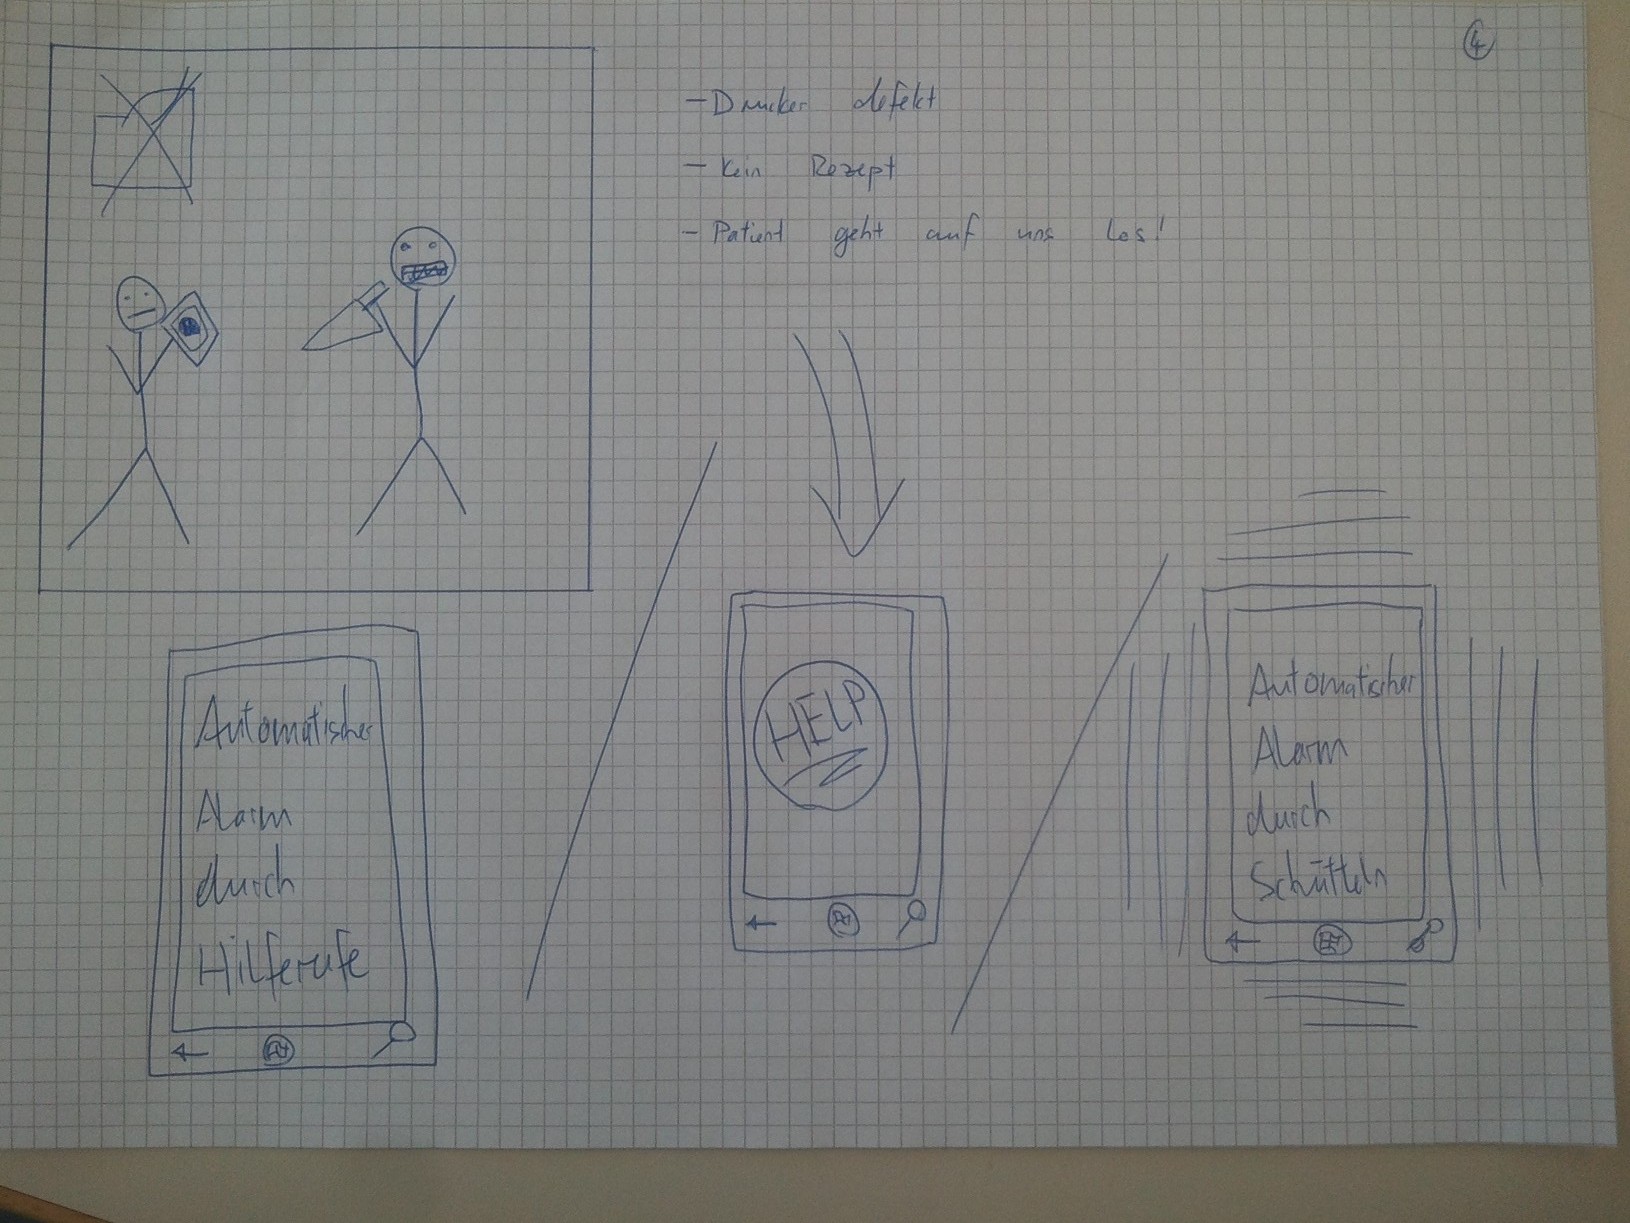 4
- Drucker defekt
- Kein Rezept
- Patient geht auf uns los!
Automatischer
Alarm
durch
Hilferufe
HELP
Automatischer
Alarm
durch
Schütteln